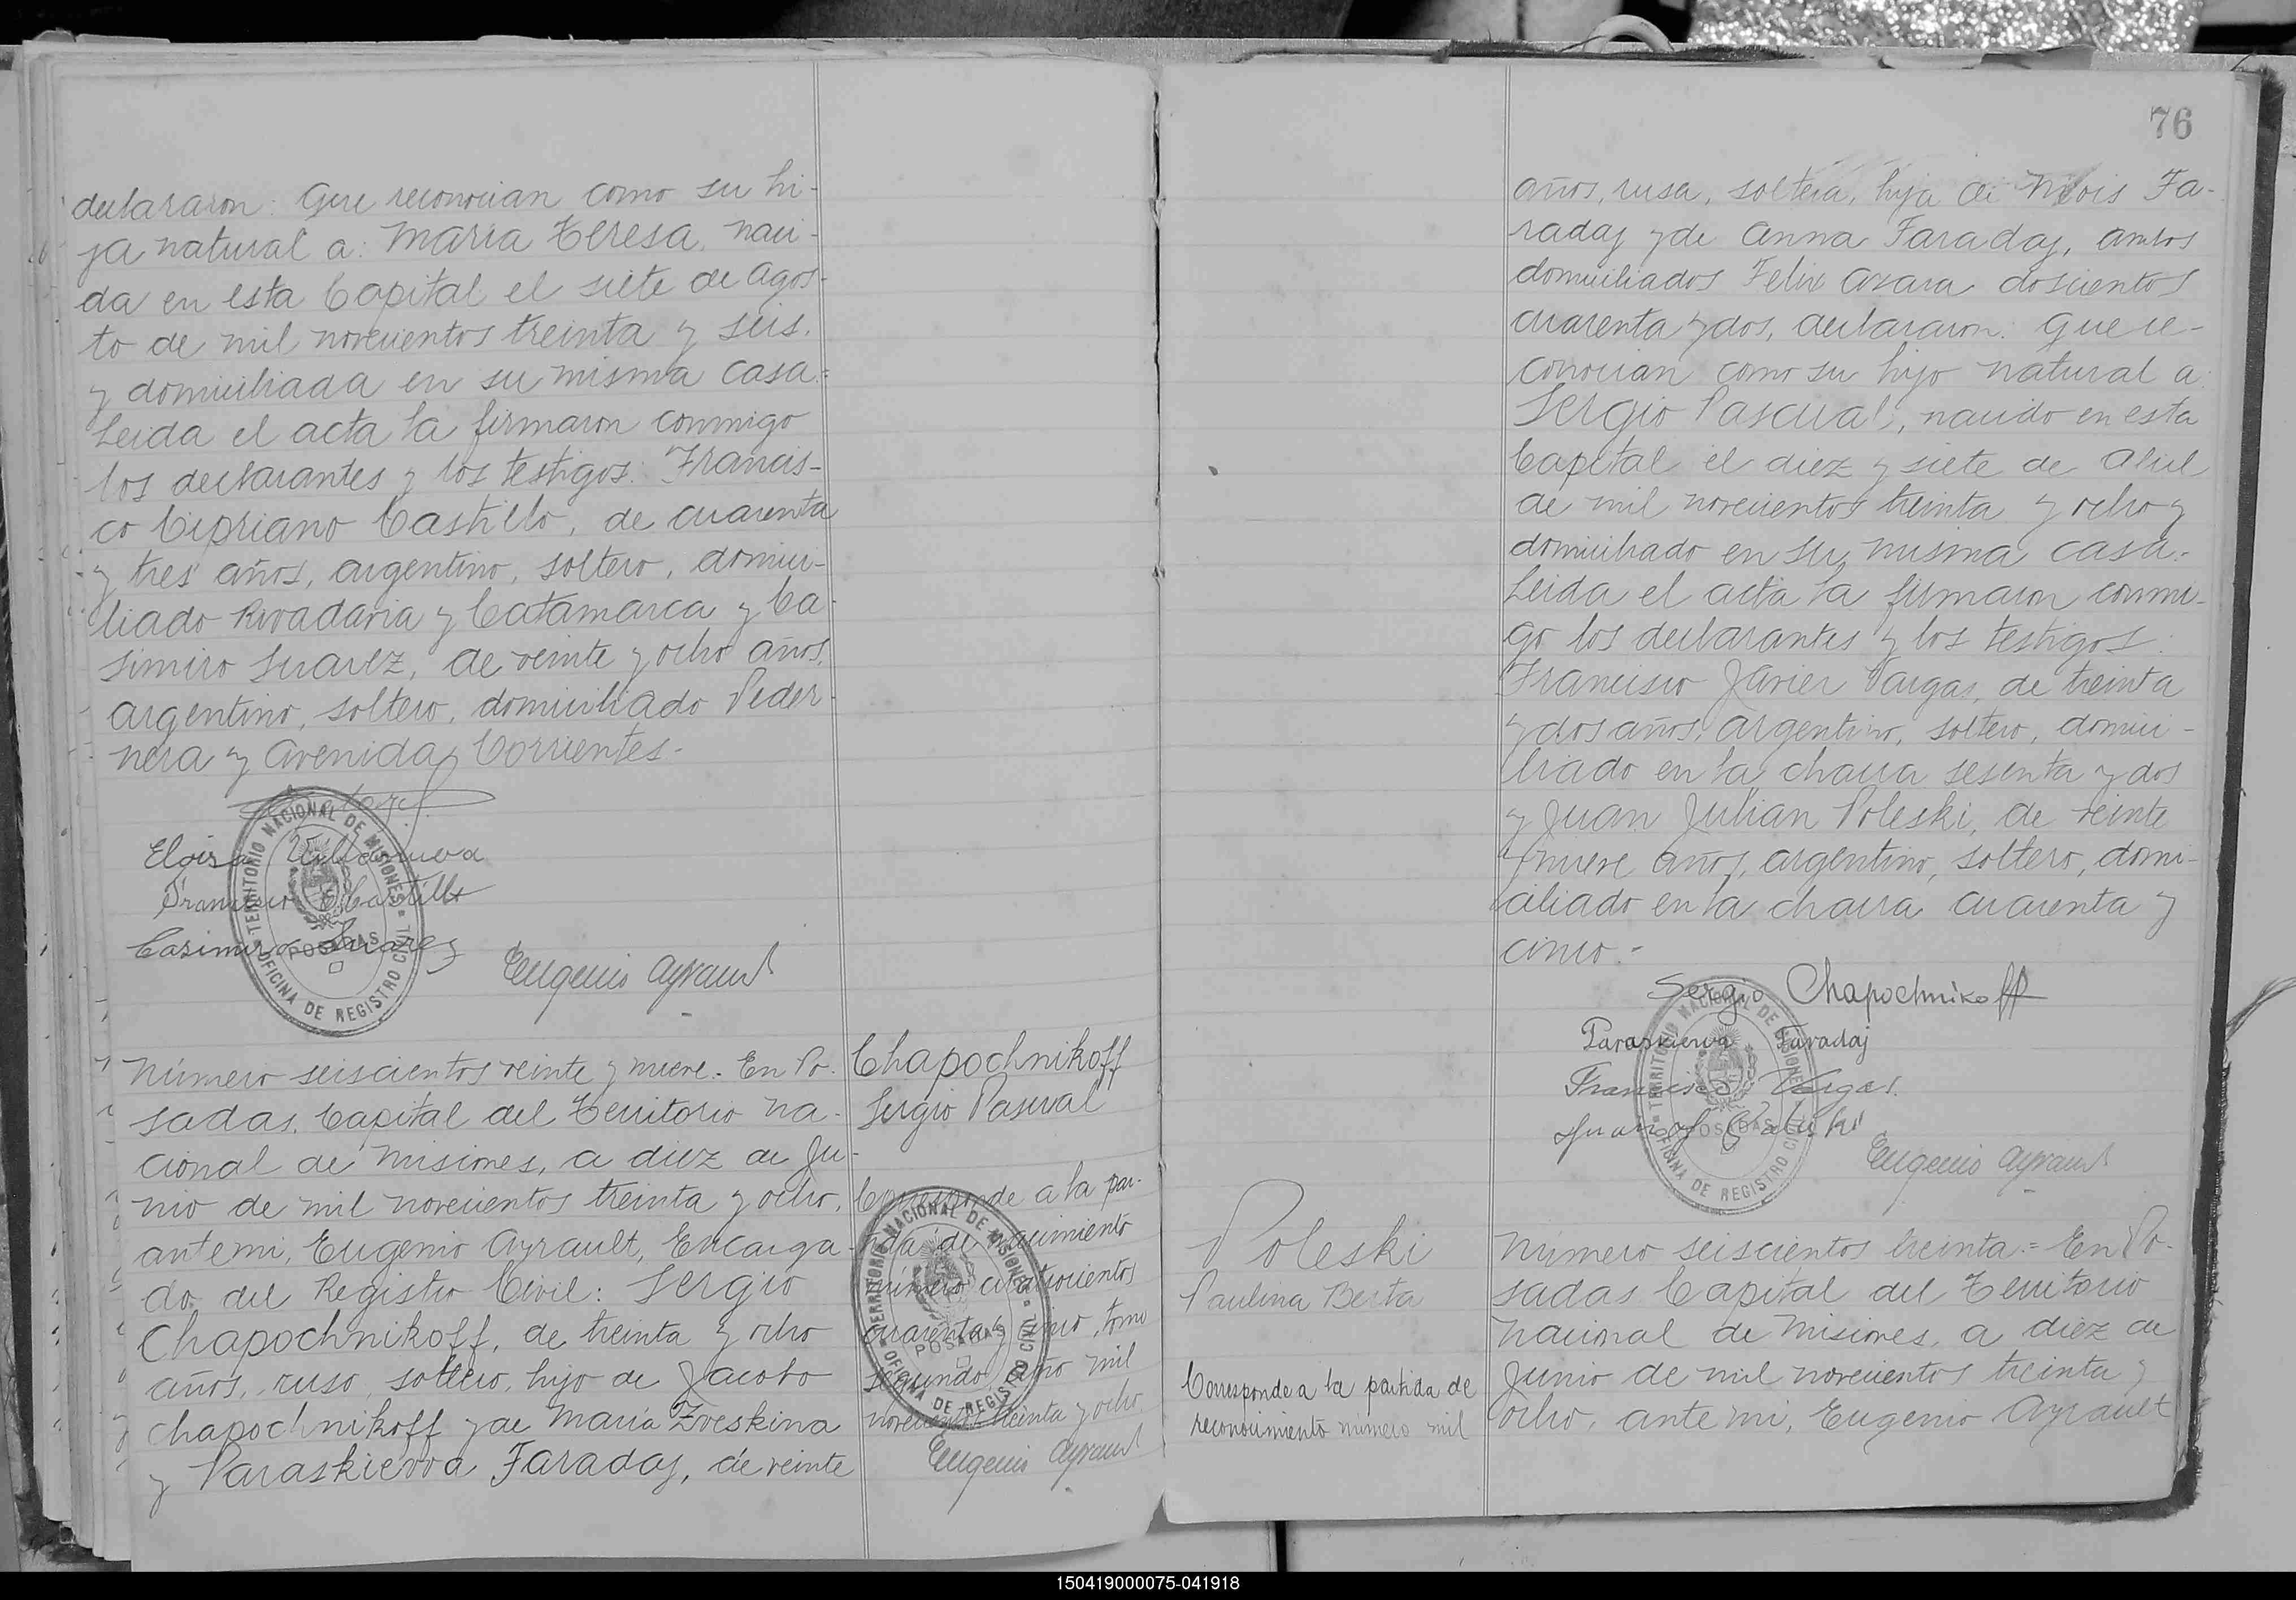 declararon: Que reconocian como su hi-
ja natural a: Maria Teresa, naci-
da en esta Capital el siete de Agos-
to de mil novecientos treinta y seis.
y domiciliada en su misma casa.=
Leida el acta la firmaron conmigo
los declarantes y los testigos: Francis-
co Cipriano Castillo, de cuarenta
y tres años, argentino, soltero, domici-
liado Rivadavia y Catamarca y Ca-
simiro Suarez, de veinte y ocho años,
argentino, soltero, domiciliado Peder-
nera y Avenida Corrientes.-
Eloisa Villanueva
Francisco C Castillo
Casimiro Suarez
Eugenio Ayrault
TERRITORIO NACIONAL DE MISIONES
POSADAS
OFICINA DE REGISTRO CIVIL
Número seiscientos veinte y nueve.- En Po-
sadas, Capital del Territorio Na-
cional de Misiones, a diez de Ju-
nio de mil novecientos treinta y ocho,
ante mi, Eugenio Ayrault, Encarga-
do del Registro Civil: Sergio
Chapochnikoff, de treinta y ocho
años, ruso, soltero, hijo de Jacobo
Chapochnikoff y de Maria Zveskina
y Paraskievva Faradaj, de veinte
Chapochnikoff
Sergio Pascual
Corresponde a la par-
tida de nacimiento
número cuatrocientos
cuarenta y uno, tomo
segundo, año mil
novecientos treinta y ocho
Eugenio Ayrault
TERRITORIO NACIONAL DE MISIONES
POSADAS
OFICINA DE REGISTRO CIVIL
76
años, rusa, soltera, hija de Nivois Fa-
radaj y de Anna Faradaj, ambos
domiciliados Felix Azara doscientos
cuarenta y dos, declararon: Que re-
conocian como su hijo natural a:
Sergio Pascual, nacido en esta
Capital el diez y siete de Abril
de mil novecientos treinta y ocho y
domiciliado en su misma casa.-
Leida el acta la firmaron conmi-
go los declarantes y los testigos:
Francisco Javier Vargas, de treinta
y dos años, argentino, soltero, domici-
liado en la chacra sesenta y dos
y Juan Julian Poleski, de veinte
y nueve años, argentino, soltero, domi-
ciliado en la chacra cuarenta y
cinco.-
Sergio Chapochnikoff
Paraskievva Faradaj
Francisco Vargas
Juan J Poleski
Eugenio Ayrault
TERRITORIO NACIONAL DE MISIONES
POSADAS
OFICINA DE REGISTRO CIVIL
Poleski
Paulina Berta
Corresponde a la partida de
reconocimiento número mil
Número seiscientos treinta.= En Po-
sadas Capital del Territorio
Nacional de Misiones, a diez de
Junio de mil novecientos treinta y
ocho, ante mi, Eugenio Ayrault
150419000075-041918